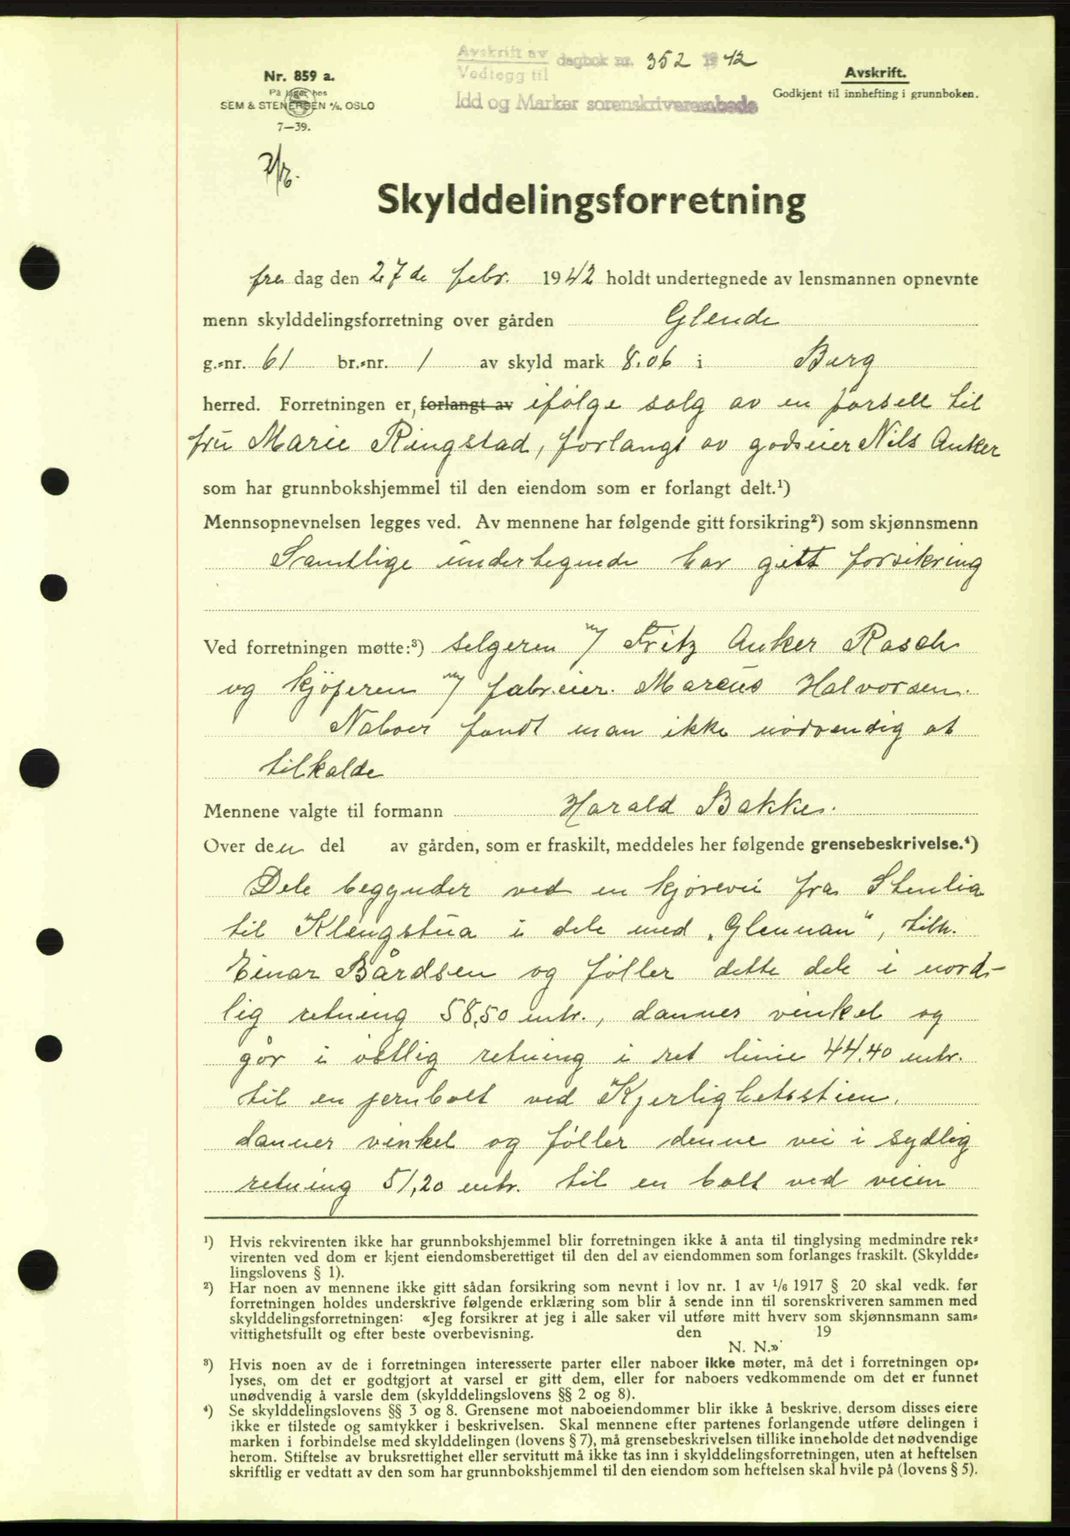 Avskrift av
Vedlegg til dagbok nr. 352 1942
Idd og Marker sorenskriverembede
Nr. 859 a.
På lager hos
SEM & STENERSEN A/S, OSLO
7—39.
Avskrift.
Godkjent til innhefting i grunnboken.
Skylddelingsforretning
fre dag den 27de febr. 1942 holdt undertegnede av lensmannen opnevnte
menn skylddelingsforretning over gården Glende
g.nr. 61 br.nr. 1 av skyld mark 8.06 i Berg
herred. Forretningen er, forlangt av ifølge salg av en parsell til
fru Marie Ringstad, forlangt av godseier Nils Anker
som har grunnbokshjemmel til den eiendom som er forlangt delt.¹)
Mennsopnevnelsen legges ved. Av mennene har følgende gitt forsikring²) som skjønnsmenn
Samtlige undertegnede har gitt forsikring
Ved forretningen møtte:³) selgeren v/ Fritz Anker Rasch
og kjøperen v/ fabr.eier. Marcus Halvorsen.
Naboer fandt man ikke nødvendig at
tilkalde
Mennene valgte til formann Harald Bakke.
Over den del av gården, som er fraskilt, meddeles her følgende grensebeskrivelse.⁴)
Dele begynder ved en kjørevei fra Stenlia
til Klengstua i dele med "Glennan", tilh.
Einar Bårdsen og føller dette dele i nord-
lig retning 58,50 mtr., danner vinkel og
går i vestlig retning i ret linie 44.40 mtr.
til en jernbolt ved Kjerlighetsstien,
danner vinkel og føller denne vei i sydlig
retning 51,20 mtr. til en bolt ved veien
¹) Hvis rekvirenten ikke har grunnbokshjemmel blir forretningen ikke å anta til tinglysing medmindre rek-
virenten ved dom er kjent eiendomsberettiget til den del av eiendommen som forlanges fraskilt. (Skyldde-
lingslovens § 1).
²) Har noen av mennene ikke gitt sådan forsikring som nevnt i lov nr. 1 av 1/6 1917 § 20 skal vedk. før
forretningen holdes underskrive følgende erklæring som blir å sende inn til sorenskriveren sammen med
skylddelingsforretningen: «Jeg forsikrer at jeg i alle saker vil utføre mitt hverv som skjønnsmann sam-
vittighetsfullt og efter beste overbevisning. den 19
N. N.»
³) Hvis noen av de i forretningen interesserte parter eller naboer ikke møter, må det i forretningen op-
lyses, om det er godtgjort at varsel er gitt dem, eller for naboers vedkommende om det er funnet
unødvendig å varsle dem (skylddelingslovens §§ 2 og 8).
⁴) Se skylddelingslovens §§ 3 og 8. Grensene mot naboeiendommer blir ikke å beskrive, dersom disses eiere
ikke er tilstede og samtykker i beskrivelsen. Skal mennene efter partenes forlangende utføre delingen i
marken i forbindelse med skylddelingen (lovens § 7), må grensebeskrivelsen tillike inneholde det nødvendige
herom. Stiftelse av bruksrettighet eller servitutt må ikke tas inn i skylddelingsforretningen, uten at heftelsen
skriftlig er vedtatt av den som har grunnbokshjemmel til den eiendom som heftelsen skal hvile på (lovens § 5).